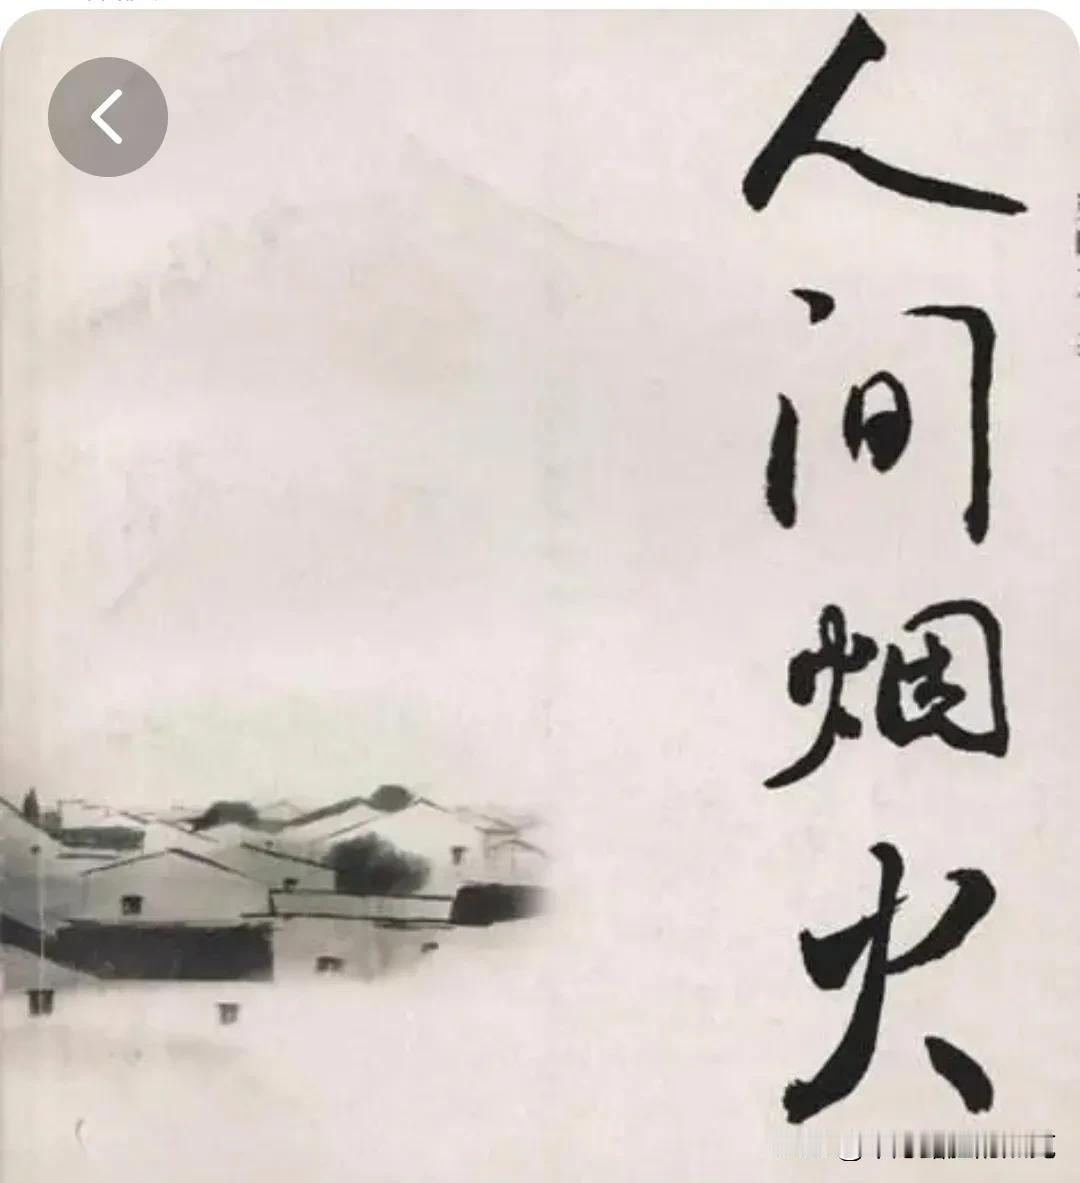 人间烟火